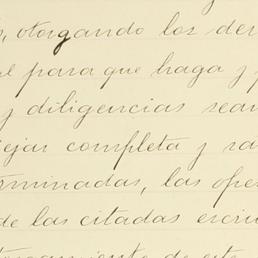 , otorgando los der
el para que haga y p
y diligencias sean
ejar completa y sa
erminadas, las oper
de las citadas escri